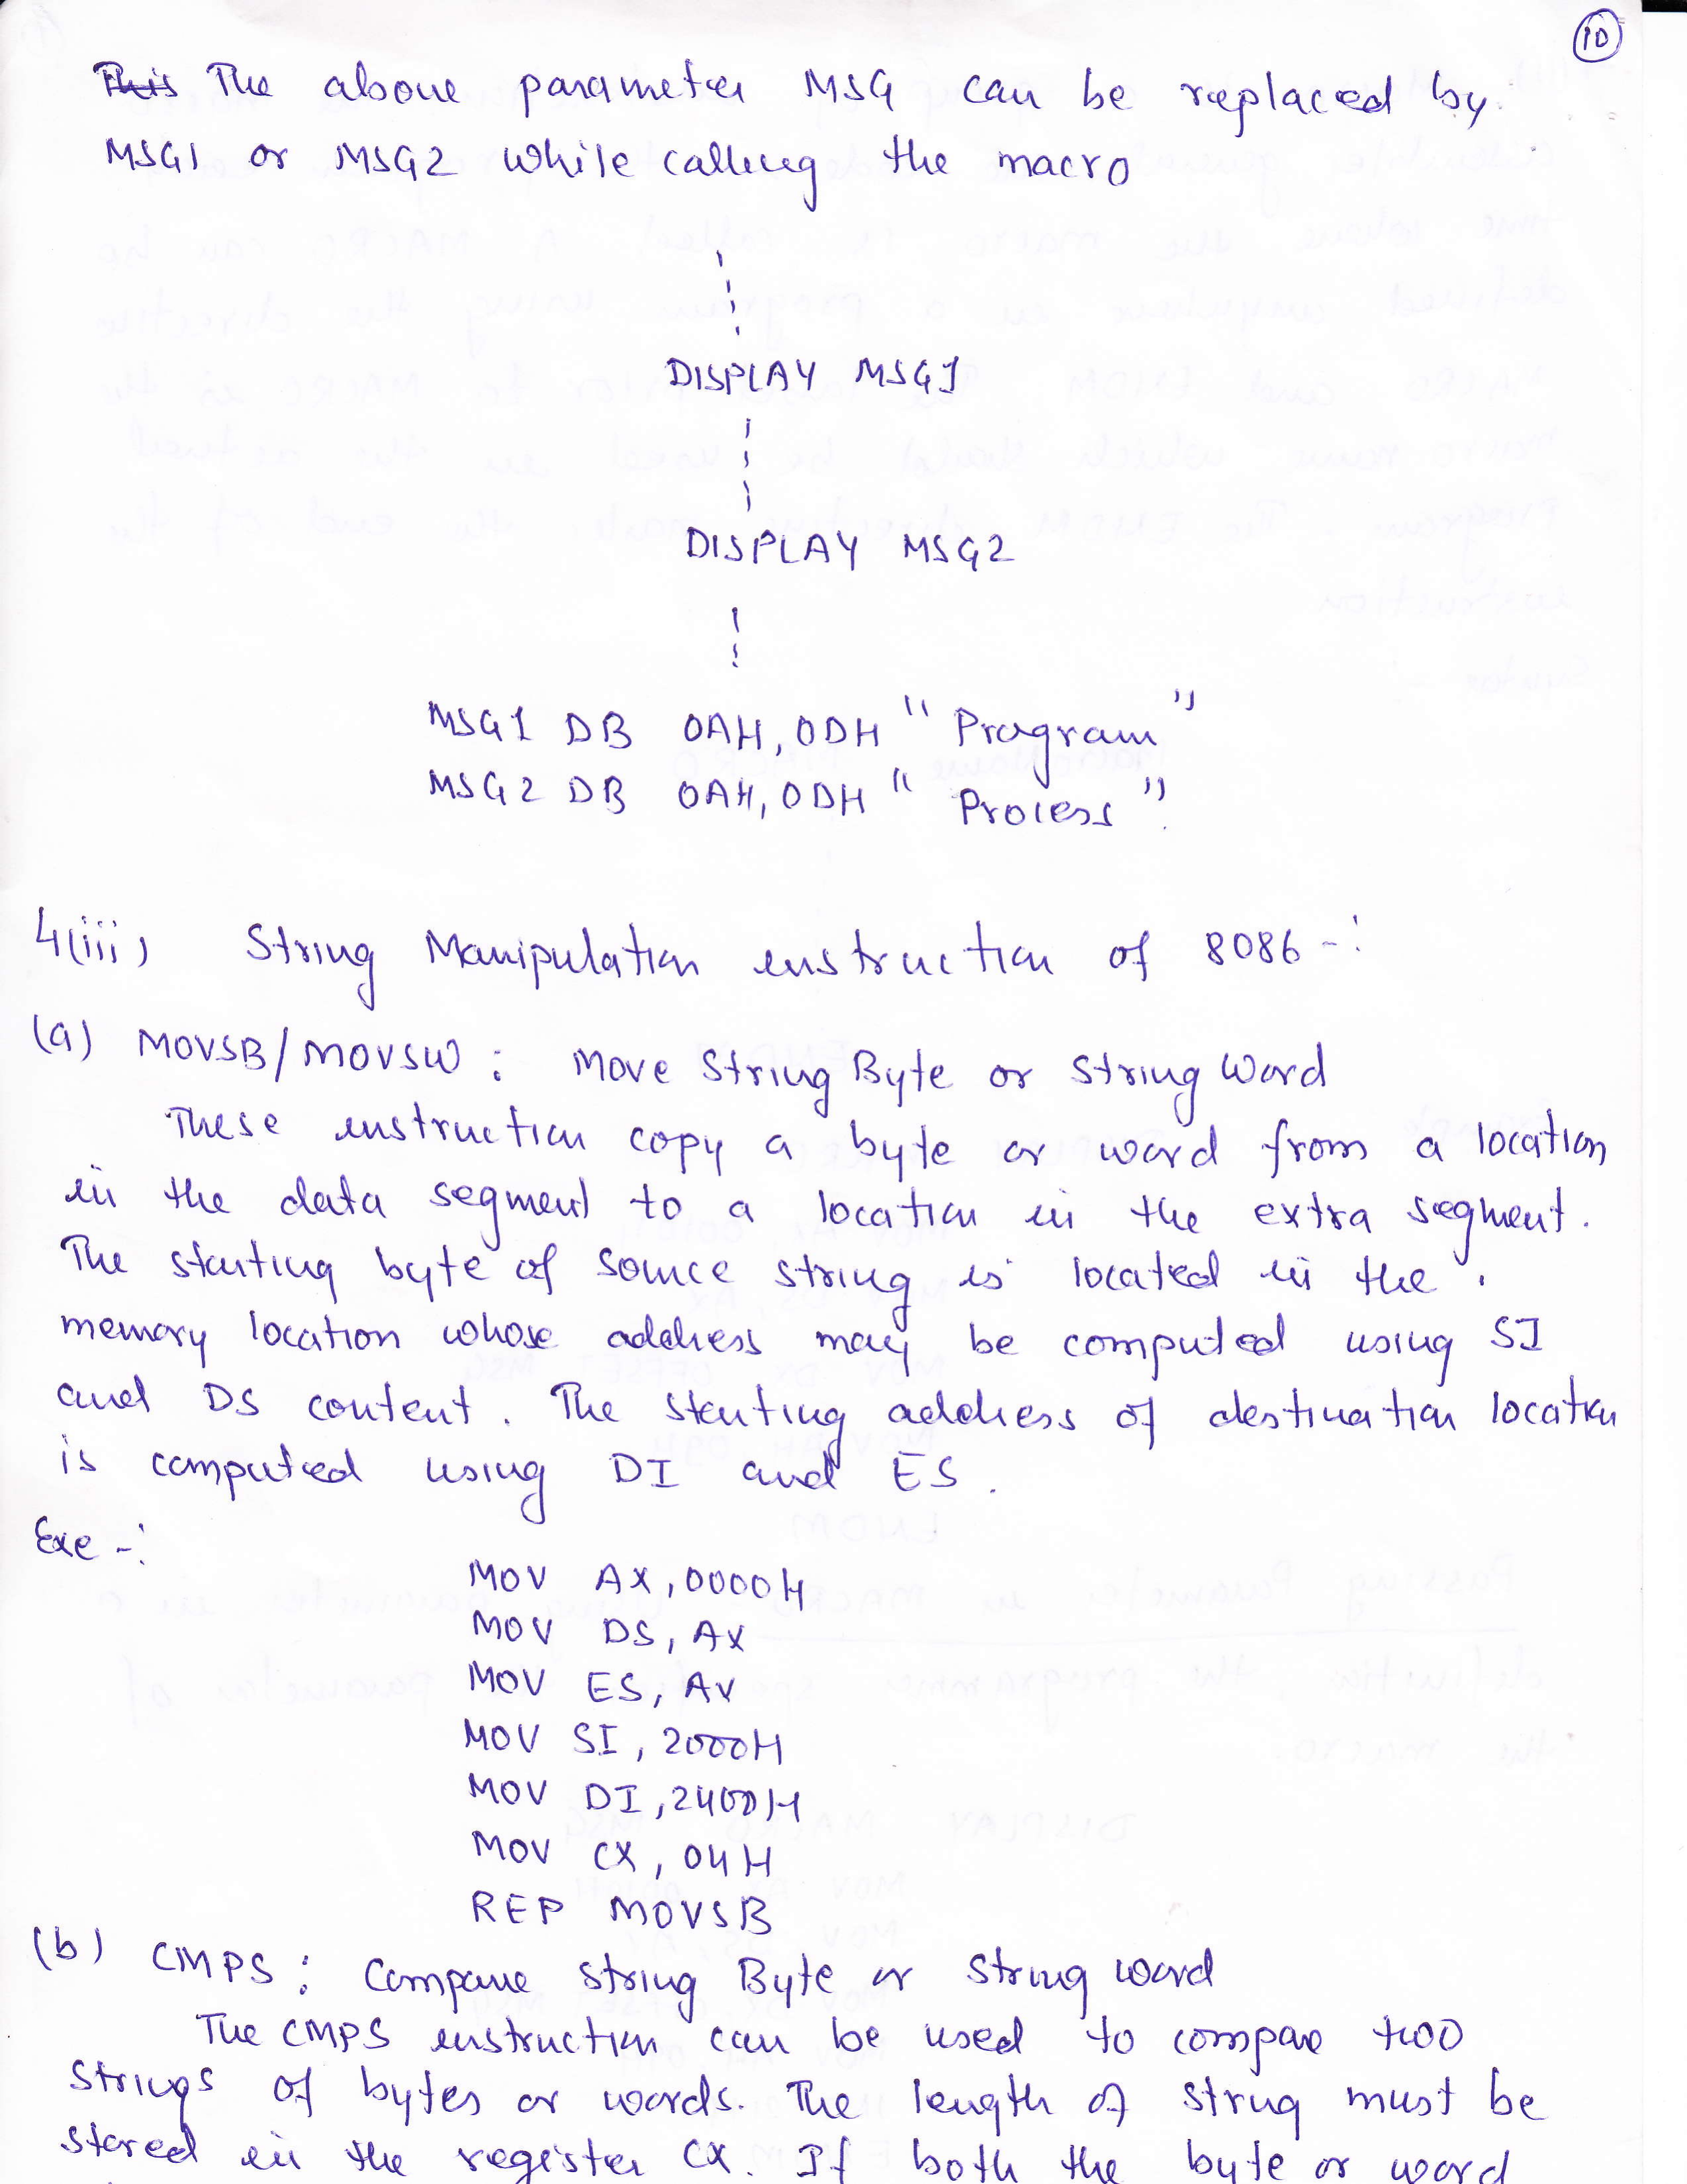 10
This The above parameter MSG can be replaced by
MSG1 or MSG2 while calling the macro
DISPLAY MSG1
DISPLAY MSG2
MSG1 DB 0AH, 0DH "Program"
MSG2 DB 0AH, 0DH "Process".
4(iii) String Manipulation instruction of 8086 -:
(a) MOVSB/MOVSW : Move String Byte or String Word
These instruction copy a byte or word from a location
in the data segment to a location in the extra segment.
The starting byte of source string is located in the
memory location whose address may be computed using SI
and DS content. The starting address of destination location
is computed using DI and ES.
Exe -:
MOV AX, 0000H
MOV DS, AX
MOV ES, AX
MOV SI, 2000H
MOV DI, 2400H
MOV CX, 04H
REP MOVSB
(b) CMPS : Compare String Byte or String word
The CMPS instruction can be used to compare two
strings of bytes or words. The length of string must be
stored in the register CX. If both the byte or word